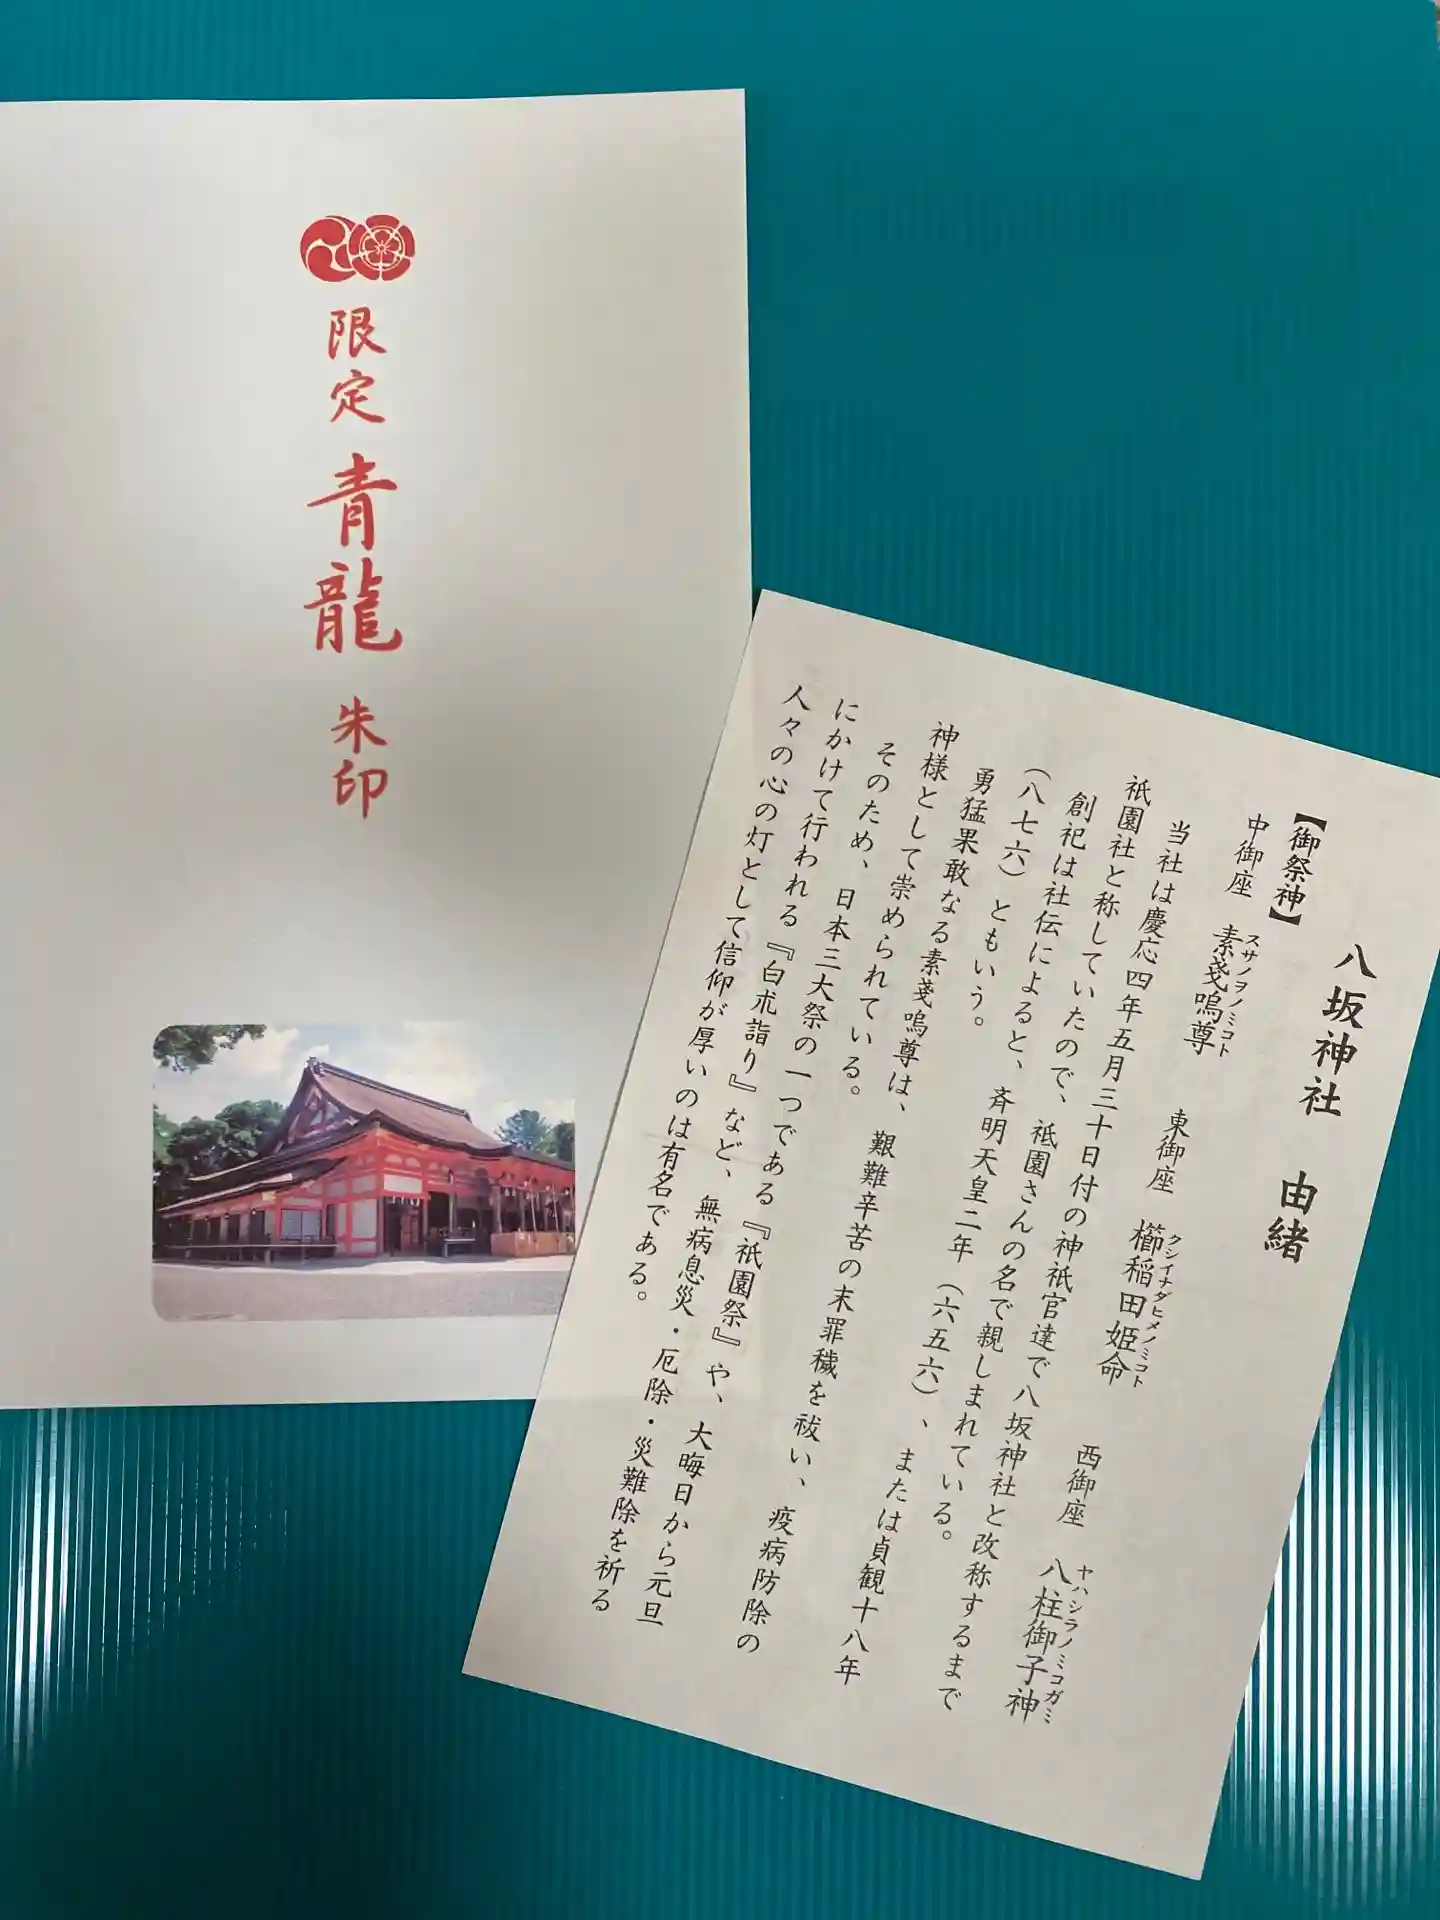 限定 青龍 朱印
八坂神社 由緒
【御祭神】
中御座 素戔嗚尊 東御座 櫛稲田姫命 西御座 八柱御子神
スサノヲノミコト クシイナダヒメノミコト ヤハシラノミコガミ
当社は慶応四年五月三十日付の神祇官達で八坂神社と改称するまで
祇園社と称していたので、祇園さんの名で親しまれている。
創祀は社伝によると、斉明天皇二年(六五六)、または貞観十八年
(八七六)ともいう。
勇猛果敢なる素戔嗚尊は、艱難辛苦の末罪穢を祓い、疫病防除の
神様として崇められている。
そのため、日本三大祭の一つである『祇園祭』や、大晦日から元旦
にかけて行われる『白朮詣り』など、無病息災・厄除・災難除を祈る
人々の心の灯として信仰が厚いのは有名である。